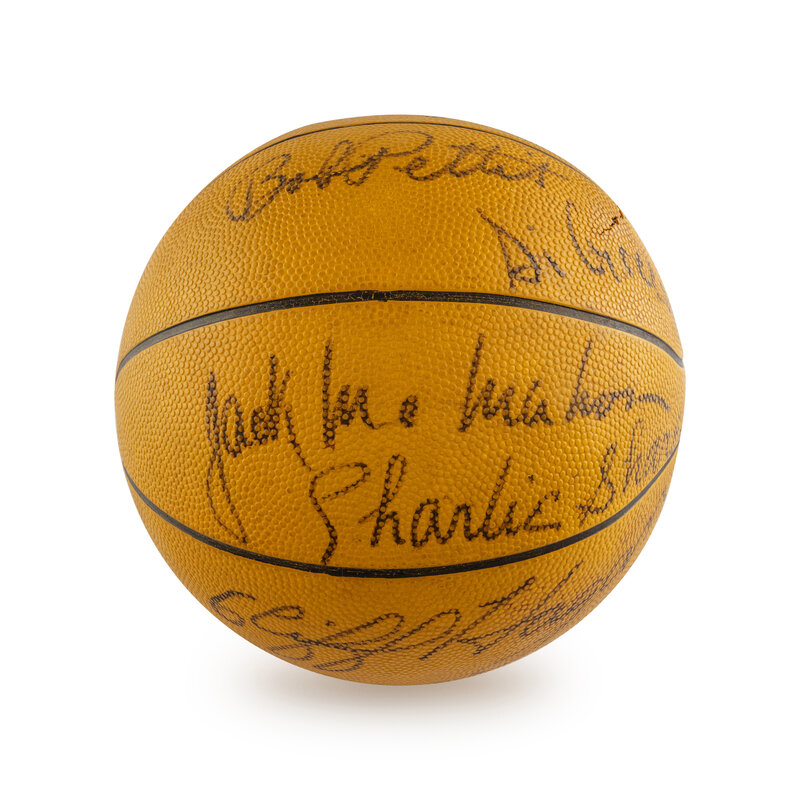 Bob Pettit
Si Green
Jack McMahon
Charlie Share
Cliff Hagan